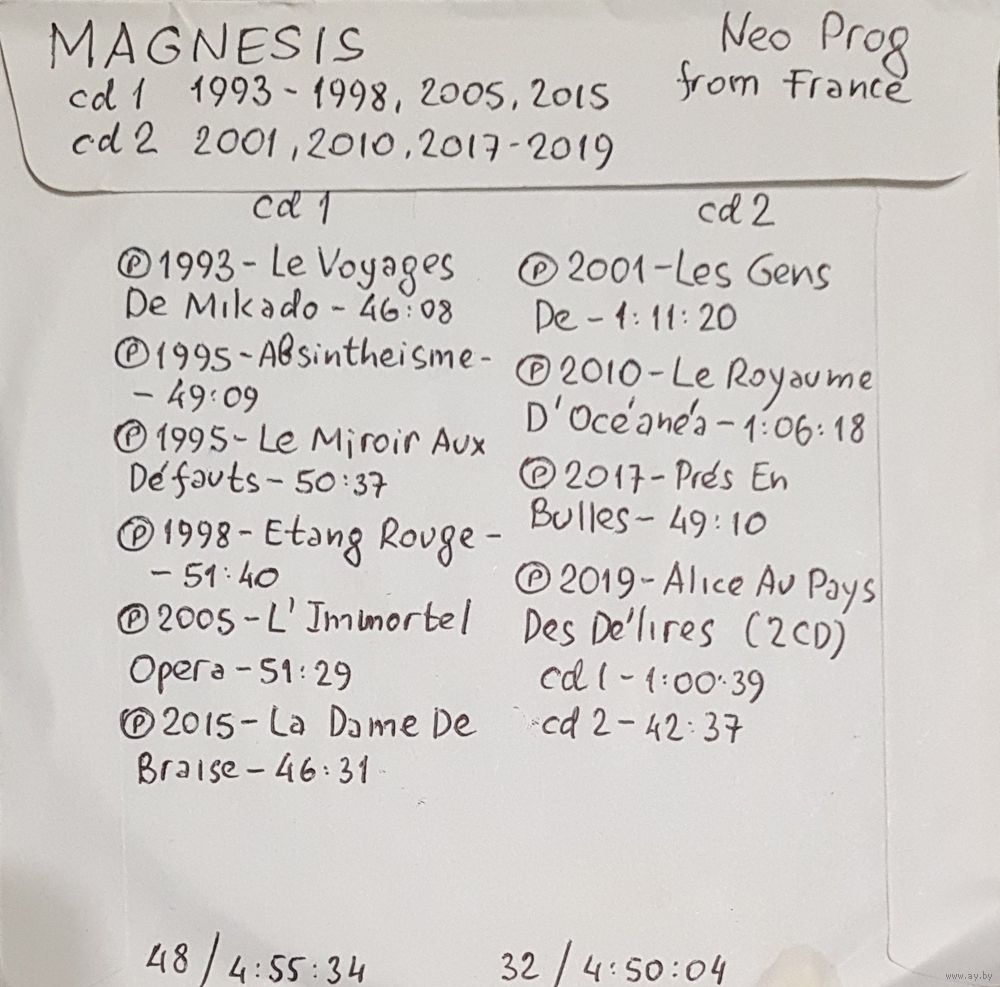 MAGNESIS
Neo Prog
from France
cd 1 1993 - 1998, 2005, 2015
cd 2 2001, 2010, 2017 - 2019
cd 1
Ⓟ 1993 - Le Voyages
De Mikado - 46:08
Ⓟ 1995 - Absintheisme -
- 49:09
Ⓟ 1995 - Le Miroir Aux
Défauts - 50:37
Ⓟ 1998 - Etang Rouge -
- 51:40
Ⓟ 2005 - L'Immortel
Opera - 51:29
Ⓟ 2015 - La Dame De
Braise - 46:31
48 / 4:55:34
cd 2
Ⓟ 2001 - Les Gens
De - 1:11:20
Ⓟ 2010 - Le Royaume
D'Océanéa - 1:06:18
Ⓟ 2017 - Prés En
Bulles - 49:10
Ⓟ 2019 - Alice Au Pays
Des Délires (2CD)
cd 1 - 1:00:39
cd 2 - 42:37
32 / 4:50:04
www.ay.by